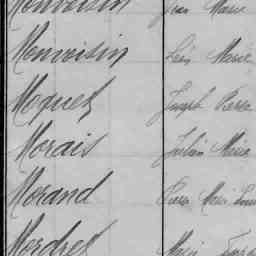 Monvoisin Jean Marie
Monvoisin Léon Marie
Moquet Joseph Pierre
Morais Julien Marie
Morand Pierre Marie
Mordret Marie